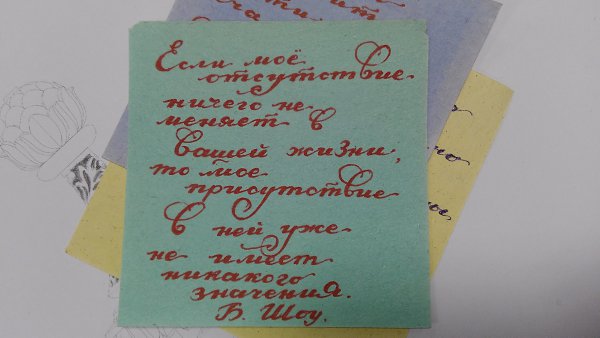 Если моё
отсутствие
ничего не
меняет в
вашей жизни,
то моё
присутствие
в ней уже
не имеет
никакого
значения.
Б. Шоу.